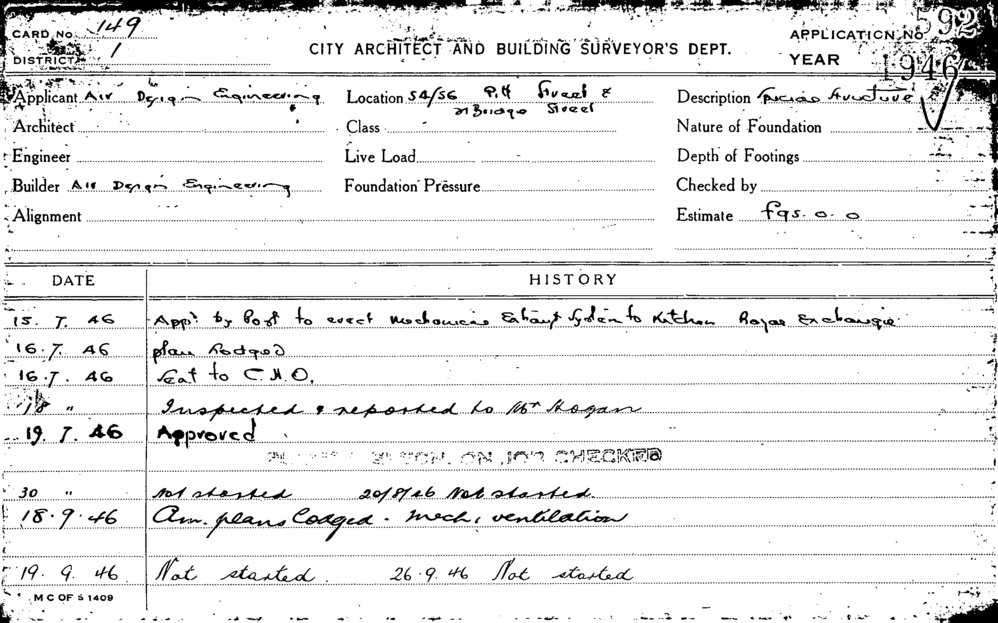 CARD No. 149
DISTRICT 1
CITY ARCHITECT AND BUILDING SURVEYOR'S DEPT.
APPLICATION No. 592
YEAR 1946
Applicant Air Design Engineering
Location 54/56 Pitt Street &
Bridge Street
Description Special Structure
Architect
Class
Nature of Foundation
Engineer
Live Load
Depth of Footings
Builder Air Design Engineering
Foundation Pressure
Checked by
Alignment
Estimate £95. 0. 0
DATE HISTORY
15. 7. 46 Appn by Post to erect Mechanical Exhaust System to Kitchen Royal Exchange
16. 7. 46 plan lodged
16. 7. 46 Sent to C.H.O.
18 " Inspected & reported to Mr Hogan
19. 7. 46 Approved
ON JOB CHECKED
30 " Not started 20/8/46 Not started.
18. 9. 46 Am. plans lodged. Mech. ventilation
19. 9. 46 Not started. 26. 9. 46 Not started
M C OF S 1409